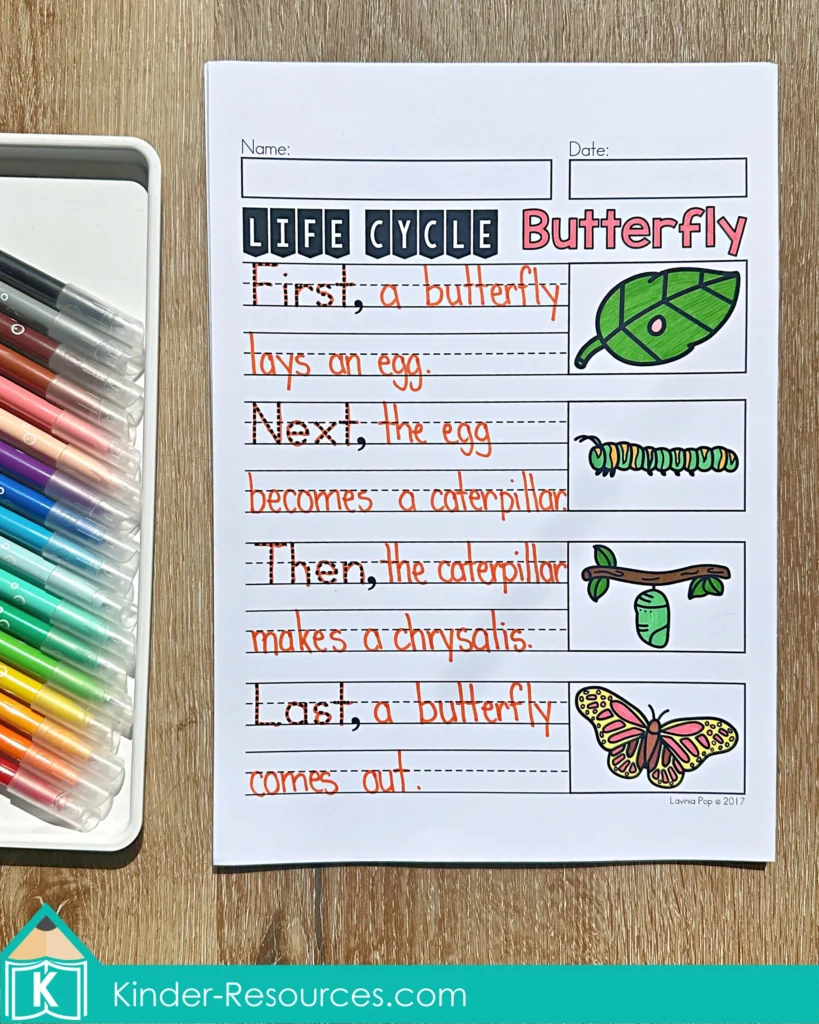 Name:
Date:
LIFE CYCLE Butterfly
First, a butterfly
lays an egg.
Next, the egg
becomes a caterpillar.
Then, the caterpillar
makes a chrysalis.
Last, a butterfly
comes out.
Lavinia Pop © 2017
K
Kinder-Resources.com